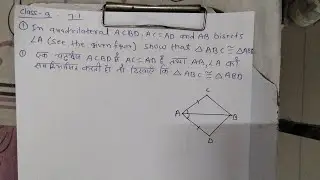 Class-9 7.1
① In quadrilateral ACBD, AC=AD and AB bisects
∠A (see the given figure) show that △ABC≅△ABD
① एक चतुर्भुज ACBD में AC=AD है तथा AB, ∠A को
समद्विभाजित करता है तो दिखाइए कि △ABC≅△ABD
C
A B
D